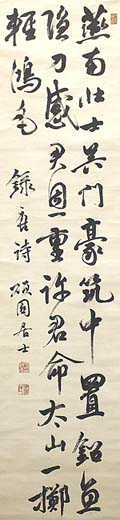 燕南壯士吳門豪筑中置鉛魚
隱刀感君恩重許君命太山一擲
輕鴻毛 錄唐詩 居士